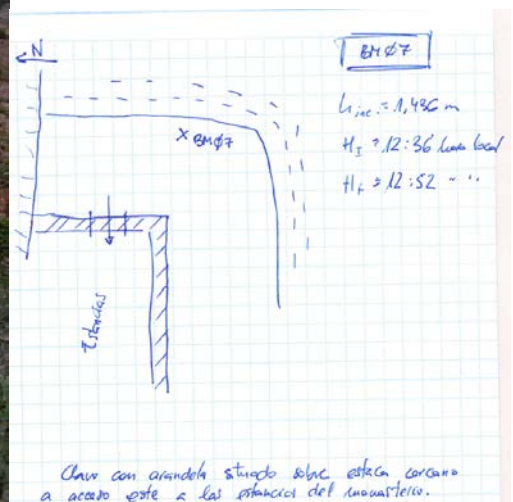 N
BMØ7
h inc. = 1,436 m
H_I = 12:36 hora local
H_f = 12:52 " "
x BMØ7
Estancias
Clavo con arandela situado sobre estaca cercano
a acceso este a las estancias del monasterio.